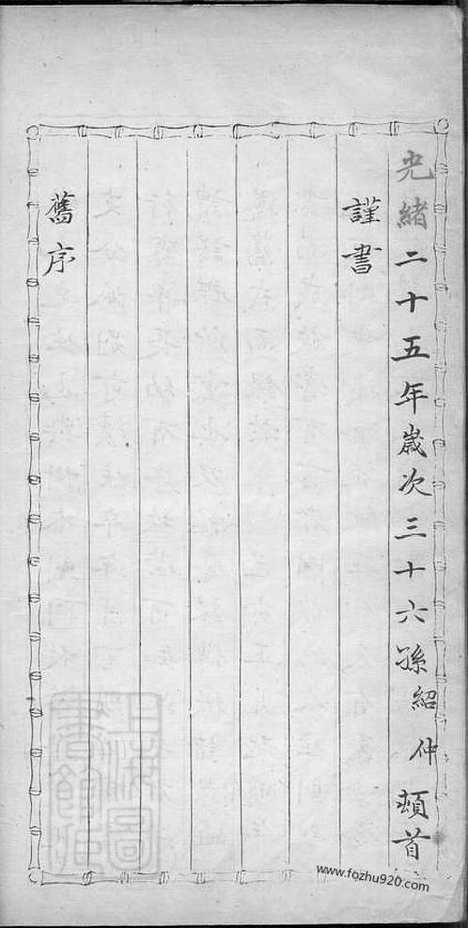 光緒二十五年歲次三十六孫紹仲頓首
謹書
舊序
上海圖書館藏
www.fozhu920.com